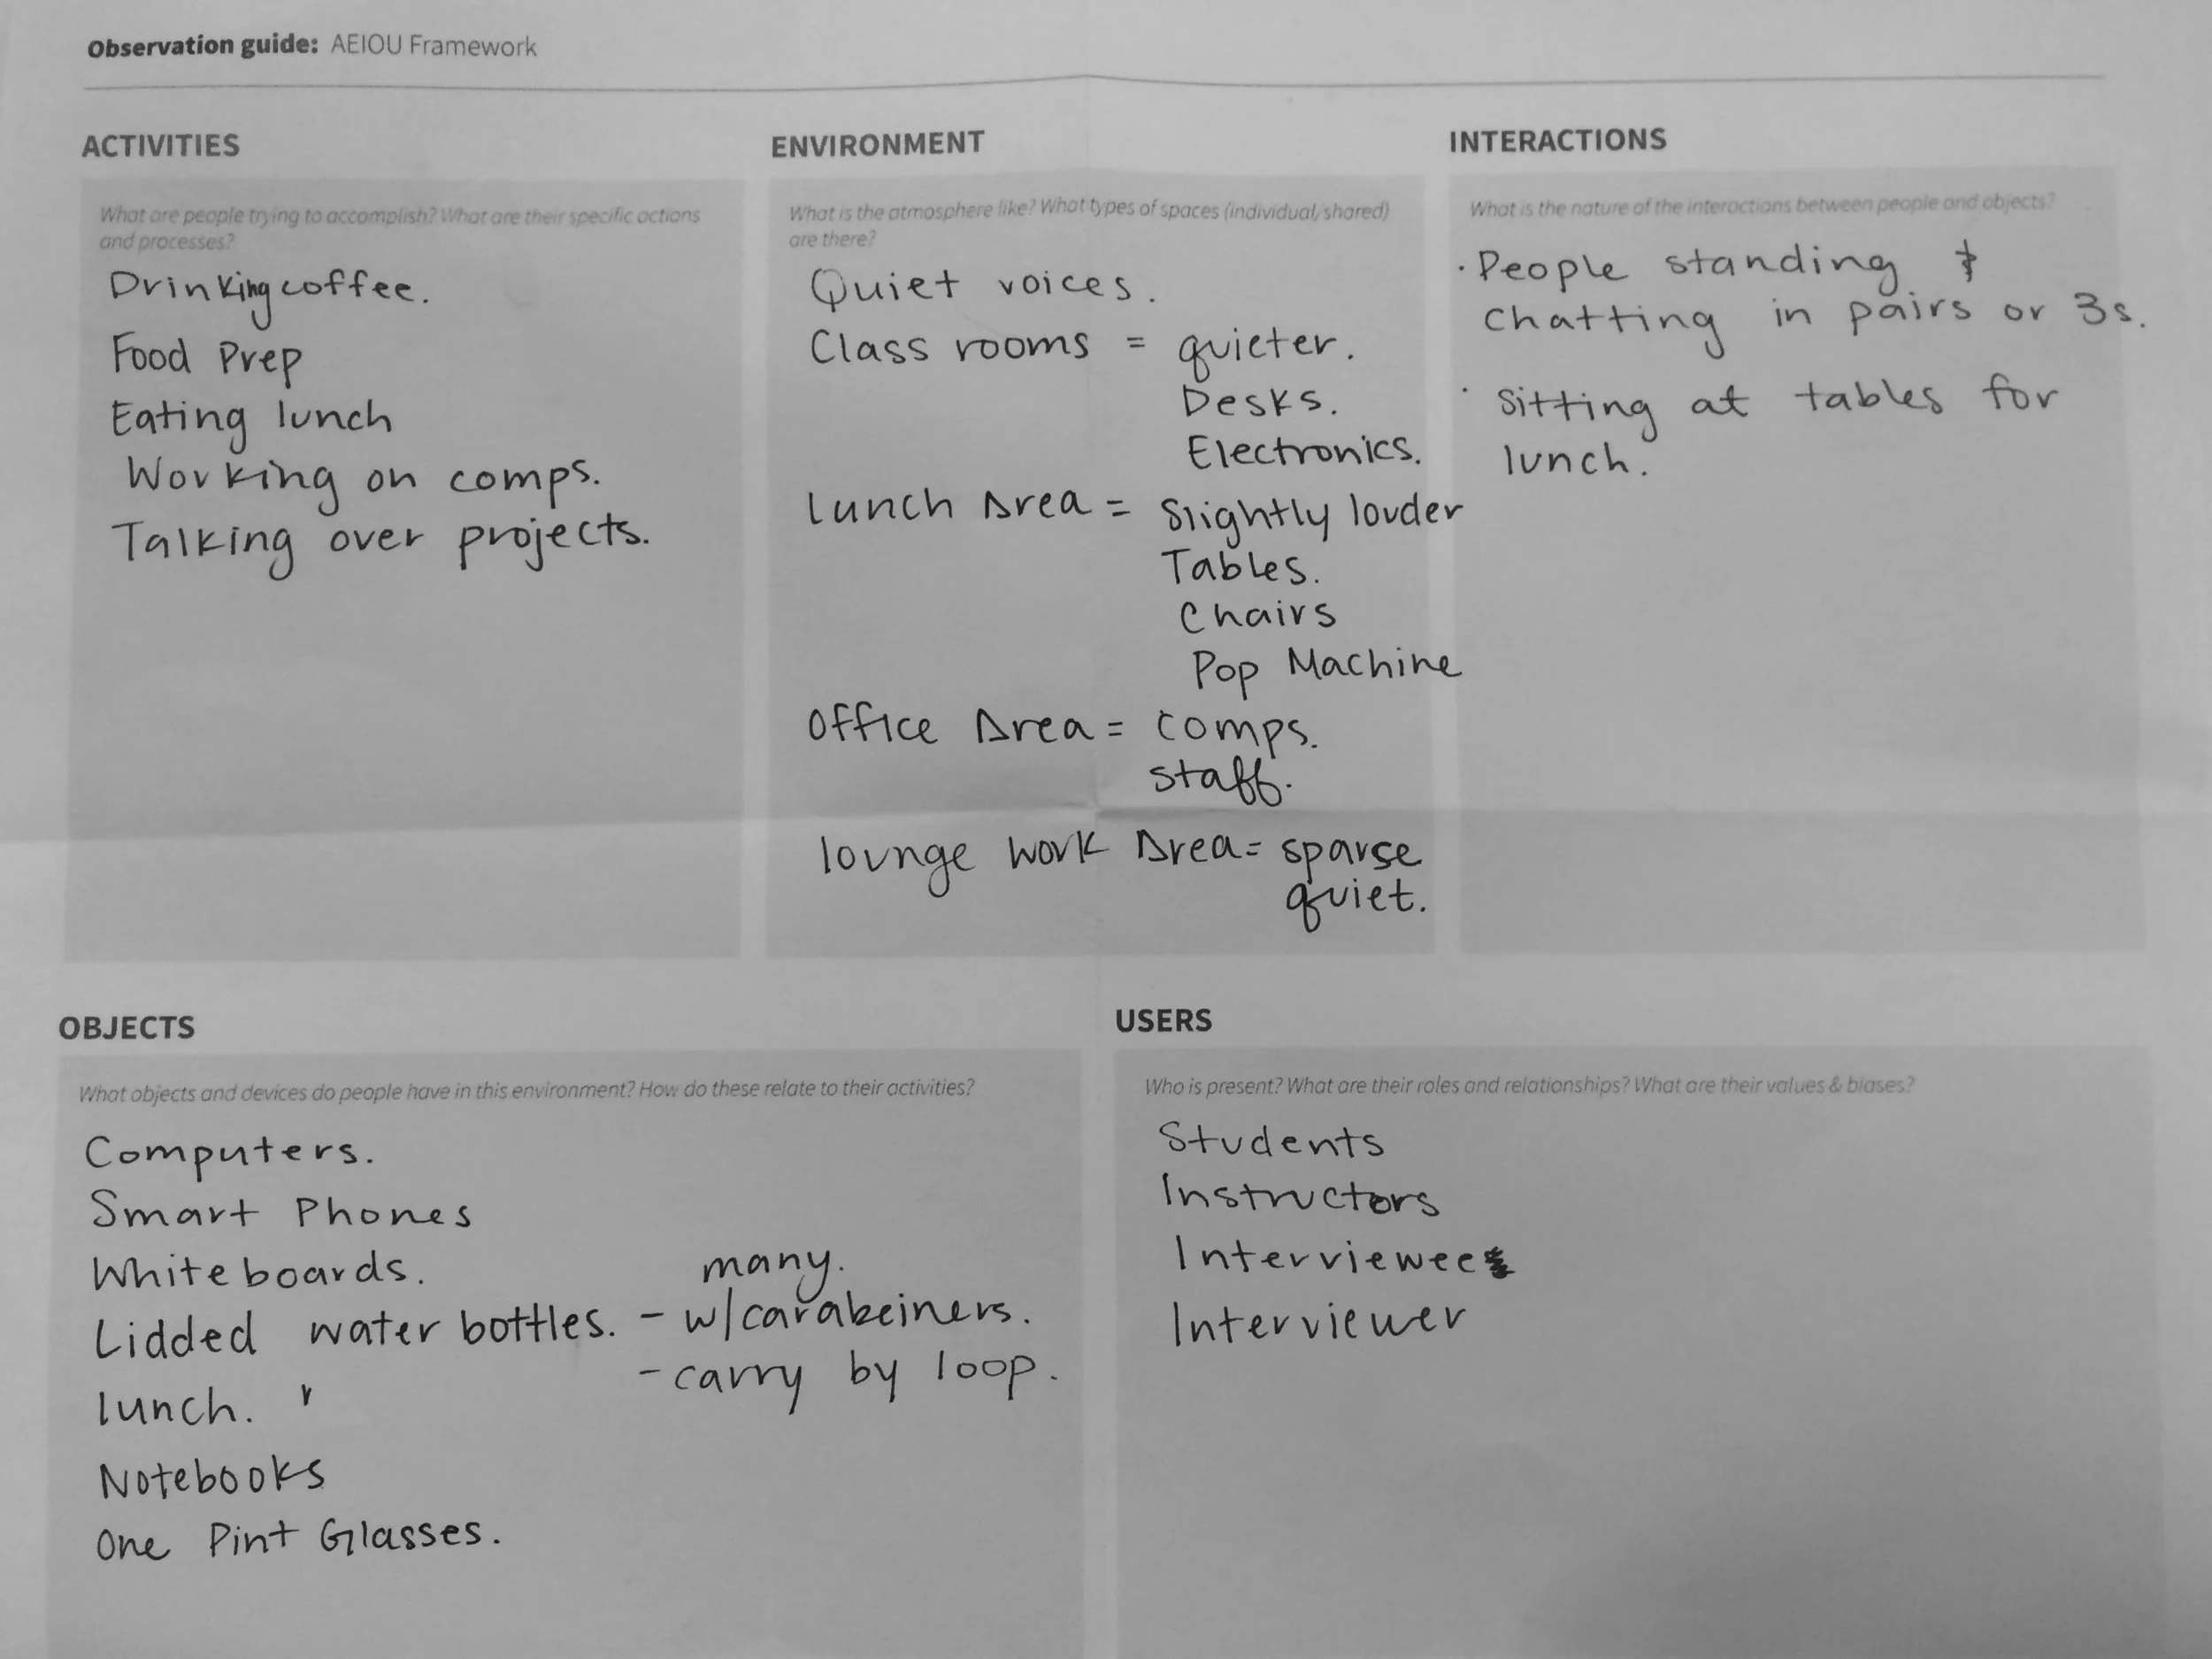 Observation guide: AEIOU Framework
ACTIVITIES
What are people trying to accomplish? What are their specific actions
and processes?
Drinking coffee.
Food Prep
Eating lunch
Working on comps.
Talking over projects.
ENVIRONMENT
What is the atmosphere like? What types of spaces (individual/shared)
are there?
Quiet voices.
Class rooms = quieter.
Desks.
Electronics.
Lunch Area = Slightly louder
Tables.
Chairs
Pop Machine
Office Area = comps.
staff.
lounge work Area = sparse
quiet.
INTERACTIONS
What is the nature of the interactions between people and objects?
· People standing &
chatting in pairs or 3s.
· Sitting at tables for
lunch.
OBJECTS
What objects and devices do people have in this environment? How do these relate to their activities?
Computers.
Smart Phones
Whiteboards.
many.
Lidded water bottles. - w/carabeiners.
- carry by loop.
lunch. "
Notebooks
One Pint Glasses.
USERS
Who is present? What are their roles and relationships? What are their values & biases?
Students
Instructors
Interviewee
Interviewer